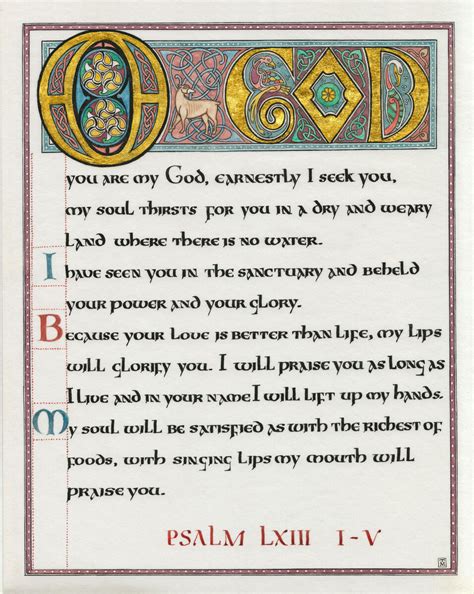 O GOD
you are my God, earnestly I seek you,
my soul thirsts for you in a dry and weary
land where there is no water.
I have seen you in the sanctuary and beheld
your power and your glory.
Because your love is better than life, my lips
will glorify you. I will praise you as long as
I live and in your name I will lift up my hands.
My soul will be satisfied as with the richest of
foods, with singing lips my mouth will
praise you.
PSALM LXIII I-V